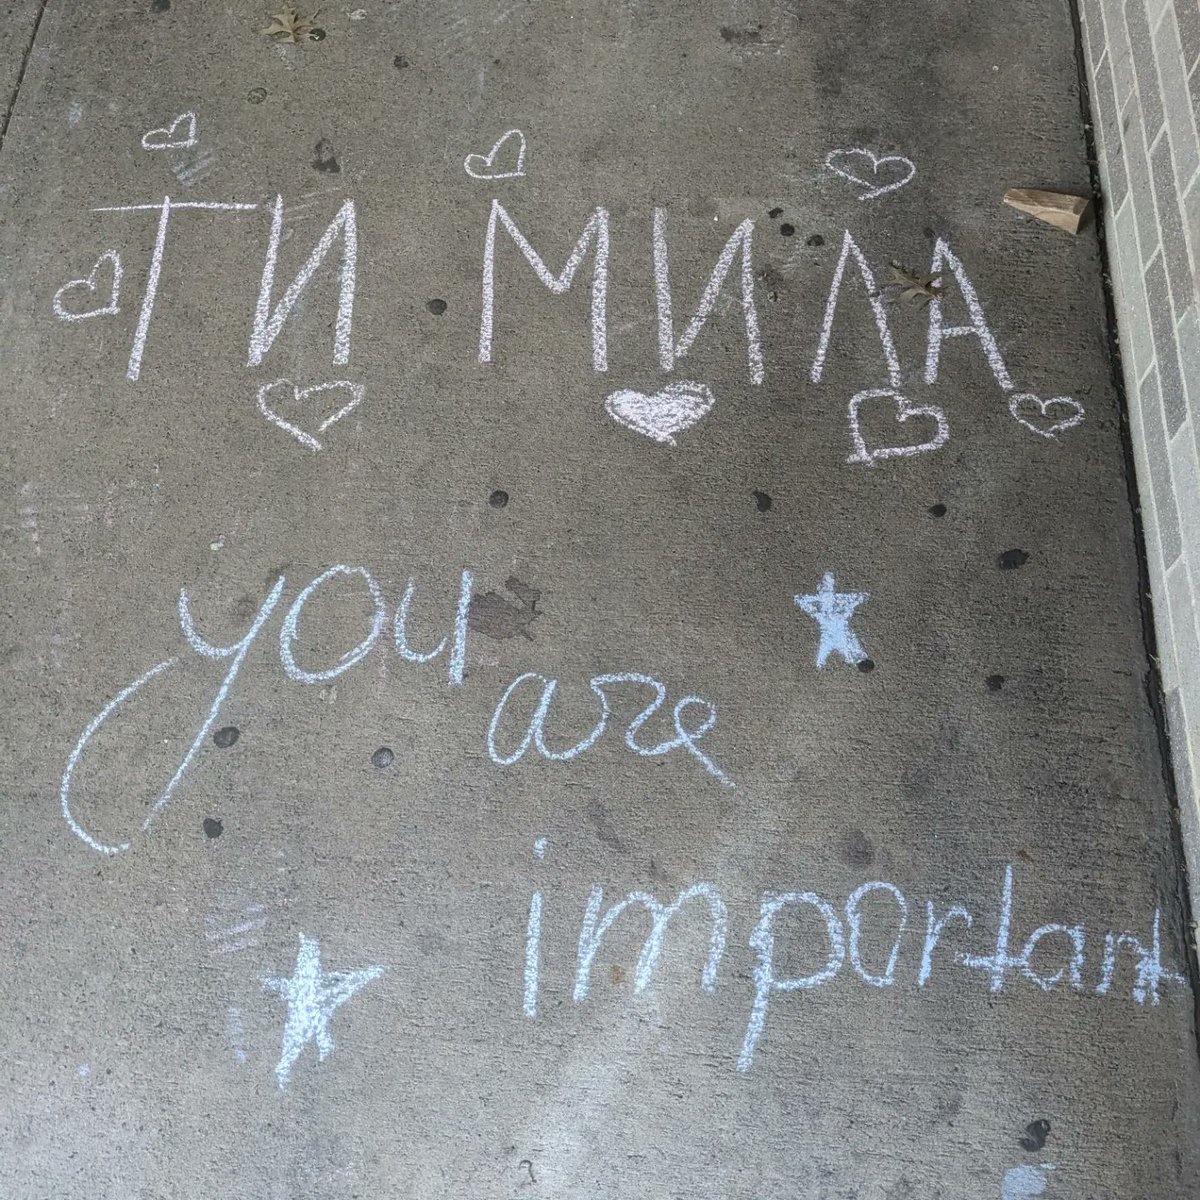 ТИ МИЛА
you
are
important